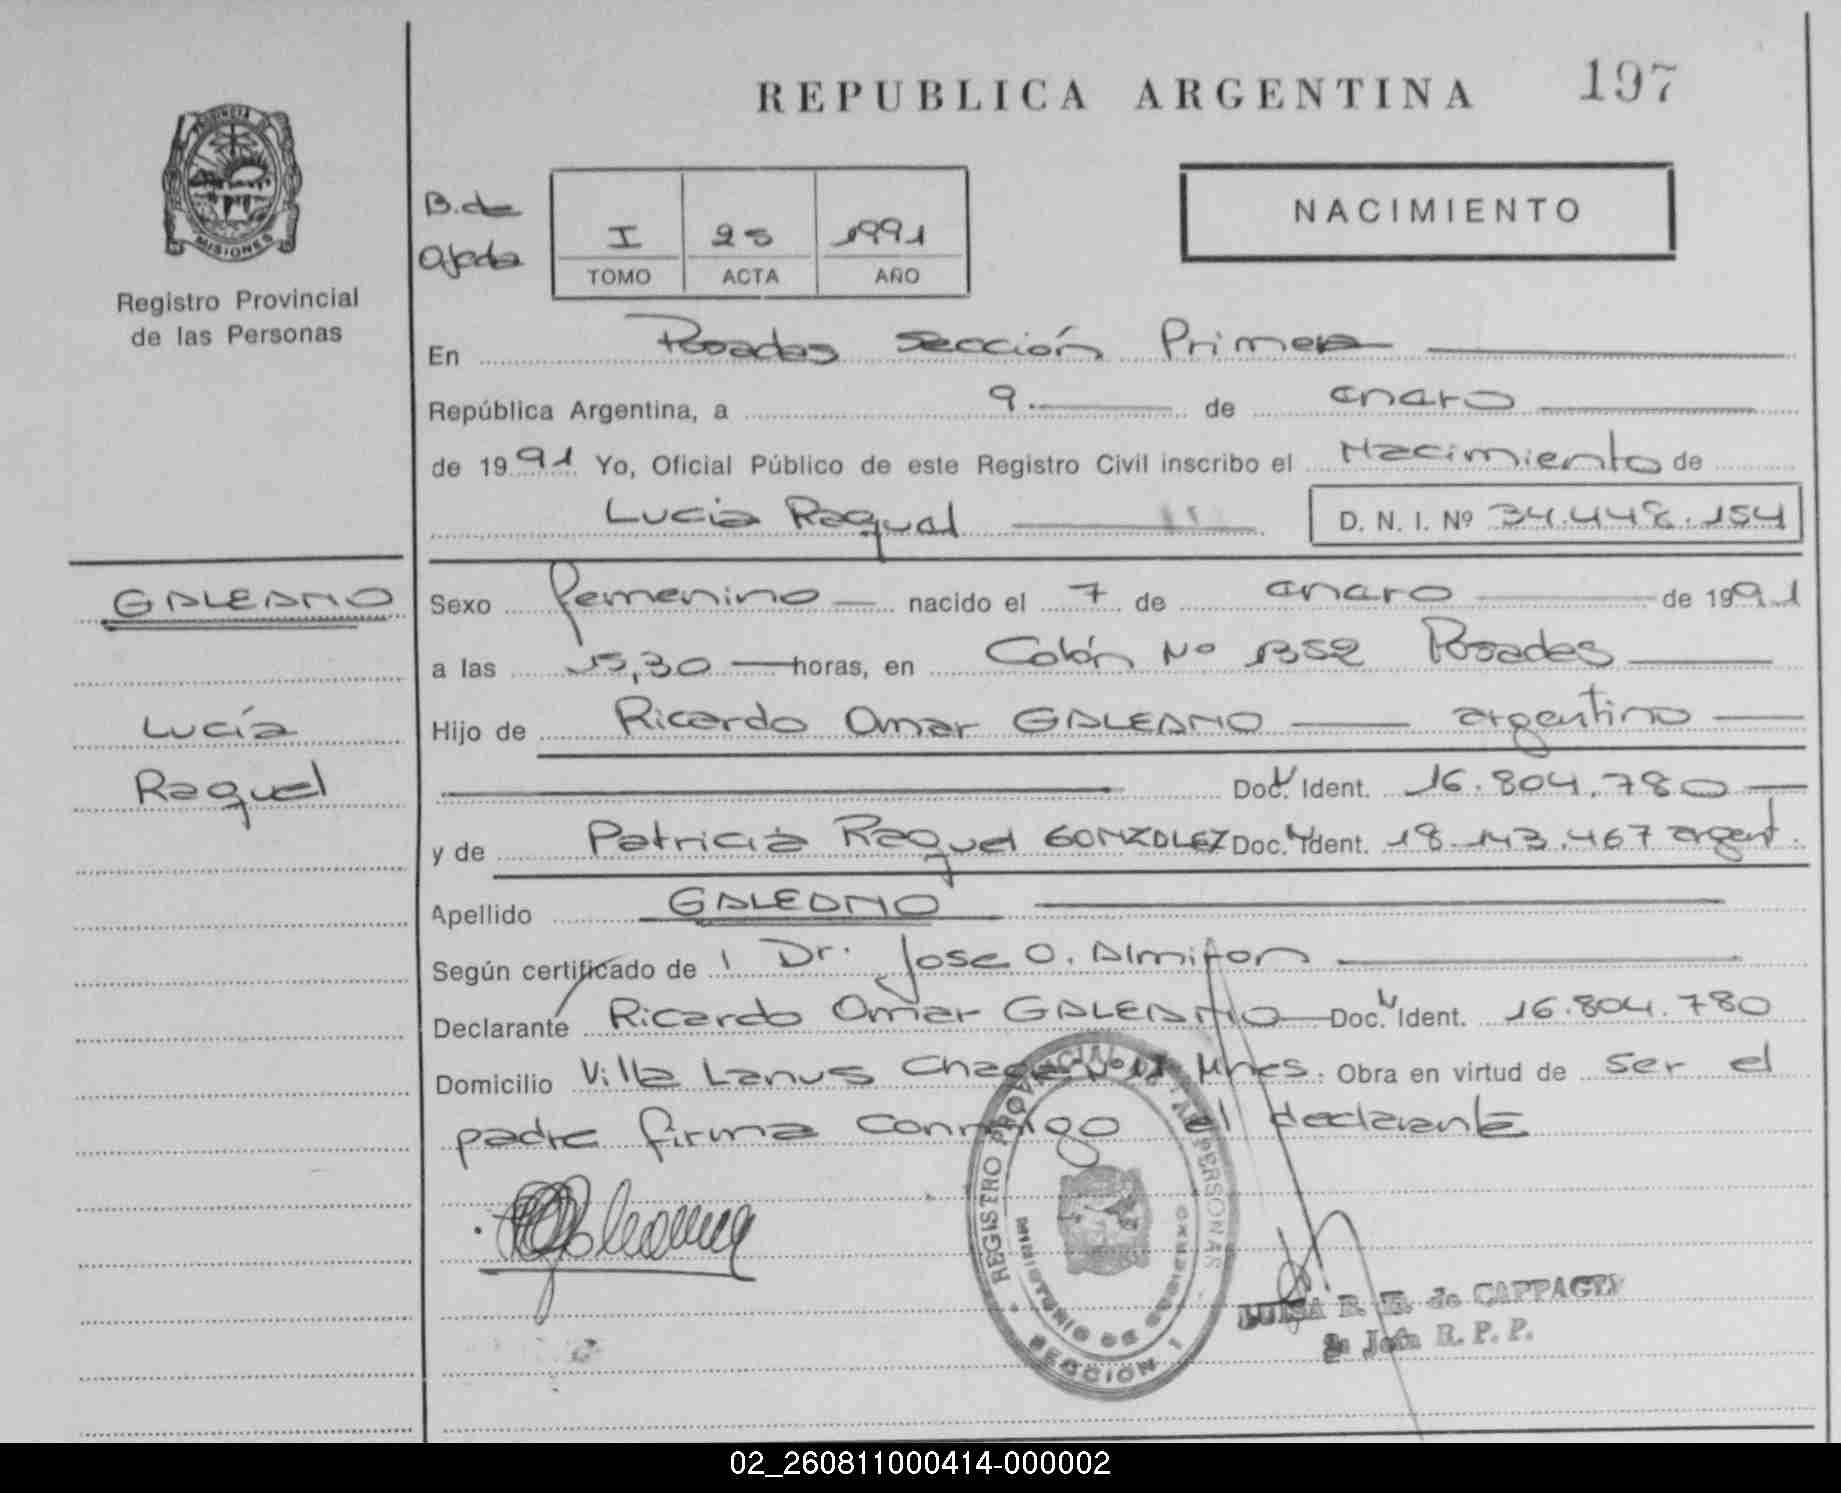 REPUBLICA ARGENTINA
197
PROVINCIA DE
MISIONES
Registro Provincial
de las Personas
B. de
I 25 1991
TOMO ACTA AÑO
NACIMIENTO
En Posadas Sección Primera
República Argentina, a 9. de enero
de 1991 Yo, Oficial Público de este Registro Civil inscribo el Nacimiento de
Lucía Raquel D. N. I. Nº 34.448.154
GALEANO
Sexo femenino nacido el 7 de enero de 1991
a las 15,30 horas, en Colón Nº 1352 Posadas
Lucía
Hijo de Ricardo Omar GALEANO argentino
Raquel
Doc. Ident. 16.804.780
y de Patricia Raquel GONZALEZ Doc. Ident. 18.143.467 argent.
Apellido GALEANO
Según certificado de Dr. Jose O. Almiron
Declarante Ricardo Omar GALEANO Doc. Ident. 16.804.780
Domicilio Villa Lanus Mnes. Obra en virtud de ser el
padre firma conmigo el declarante
REGISTRO PROVINCIAL DE LAS PERSONAS
MINISTERIO DE GOBIERNO
SECCION 1
LUISA de
2a Jefa R. P. P.
02_260811000414-000002